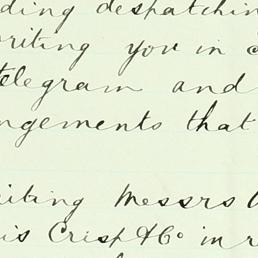 ding despatchin
riting you in
telegram and
ngements that
riting Messrs
is Crisp & Co in r